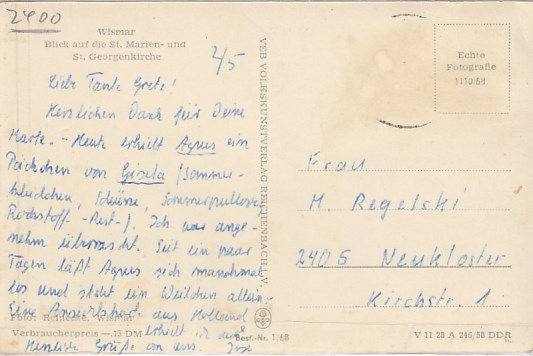 2400
Wismar
Blick auf die St. Marien- und
St. Georgenkirche
2/5
Liebe Tante Grete!
Herzlichen Dank für Deine
Karte. - Heute erhielt Agnes ein
Päckchen von Gisela (Sommer-
kleidchen, Schürze, Sommerpullover,
Reststoff -Rest-). Ich war ange-
nehm überrascht. Seit ein paar
Tagen läßt Agnes sich manchmal
los und steht ein Weilchen allein.
Eine Ansichtskarte aus Holland
erhielt auch
Herzliche Grüße von uns
Foto: Wismar
Verbraucherpreis —.15 DM
Best.-Nr. 1/68
VEB VOLKSKUNSTVERLAG REICHENBACH I. V.
Echte
Fotografie
1110/54
Frau
M. Regelski
2405 Neukloster
Kirchstr. 1
V 11 28 A 246/58 DDR